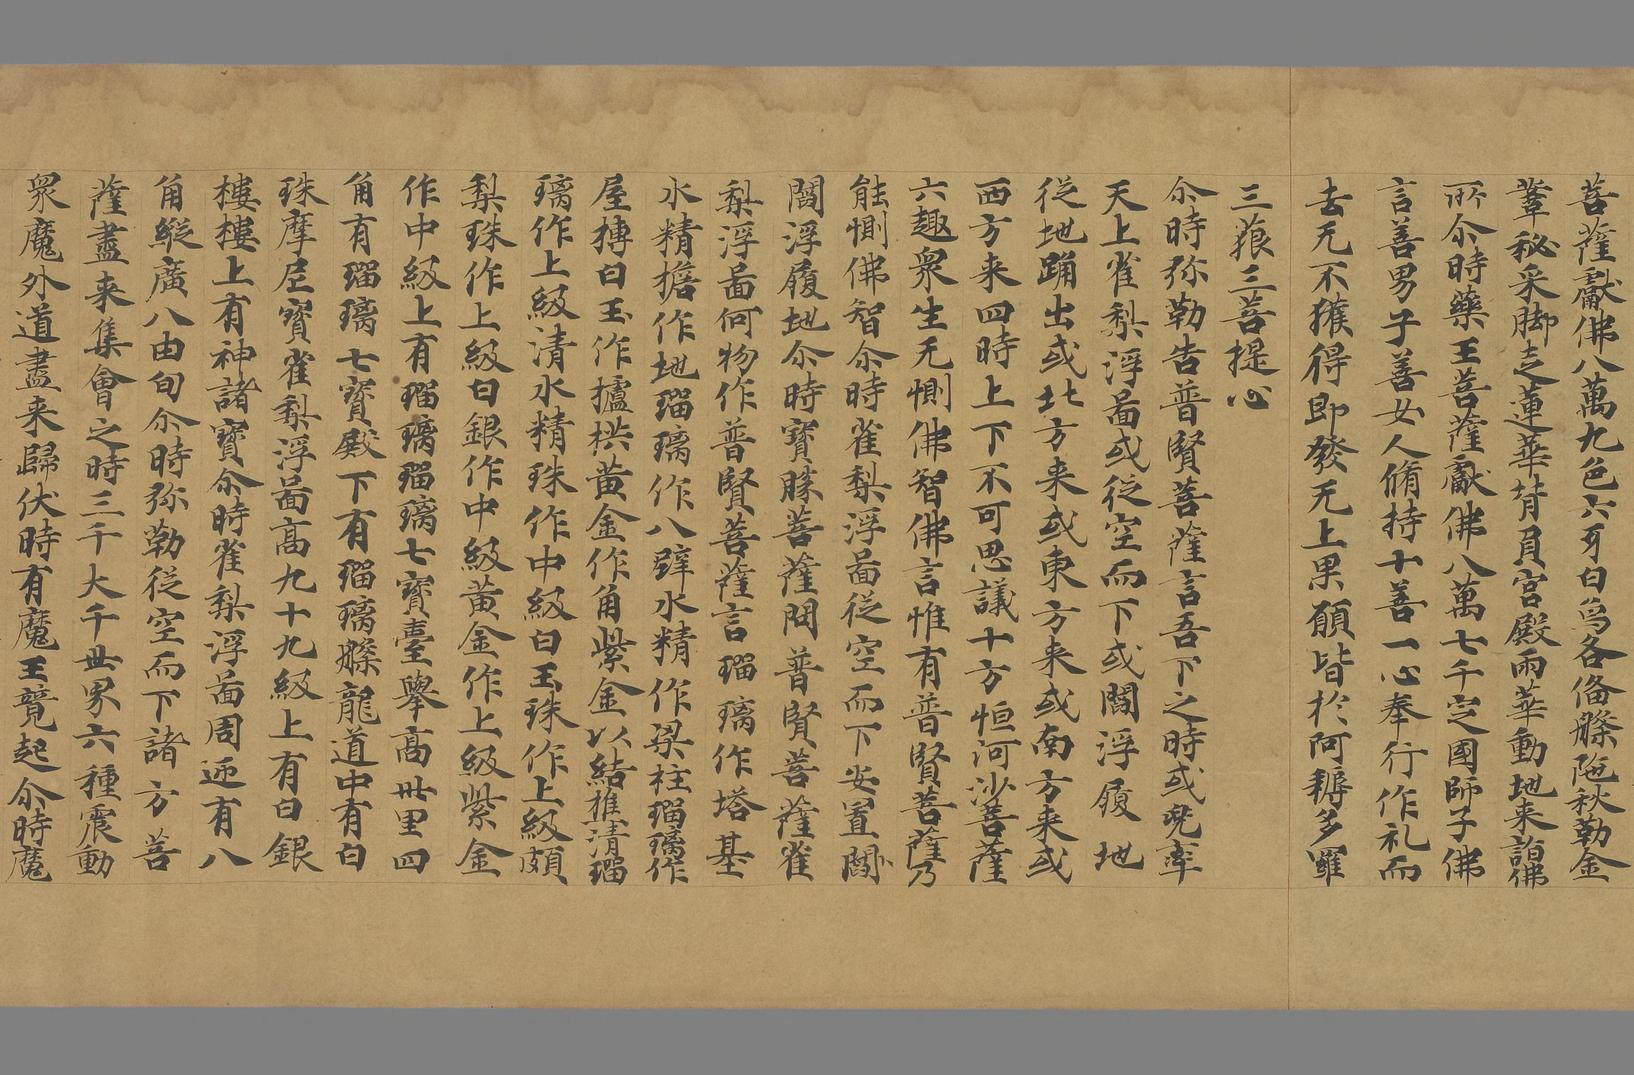 菩薩獻佛八萬九色六牙白爲各俻騰陁秋勒金
葦秘采脚走蓮華背負宮殿雨華動地来詣佛
所尒時藥王菩薩獻佛八萬七千㝎國師子佛
言善男子善女人脩持十善一心奉行作礼而
去无不獲得即發无上果願皆扵阿耨多羅
三藐三菩提心
尒時弥勒告普賢菩薩言吾下之時或兜率
天上雀梨浮啚或従空而下或閻浮履地
従地踊出或北方来或東方来或南方来或
西方来四時上下不可思議十方恒河沙菩薩
六趣衆生无惻佛智佛言惟有普賢菩薩乃
能惻佛智尒時雀梨浮啚従空而下安置閻
閻浮履地尒時寳勝菩薩問普賢菩薩雀
梨浮啚何物作普賢菩薩言瑠璃作塔基
水精擔作地瑠璃作八壁水精作梁柱瑠璃作
屋摶白玉作攎栱黄金作角紫金以結推清瑠
璃作上級清水精珠作中級白玉珠作上級頗
梨珠作上級白銀作中級黄金作上級紫金
作中級上有瑠璃瑠璃七寳臺舉高卌里四
角有瑠璃七寳殿下有瑠璃騰龍道中有白
珠摩尼寳雀梨浮啚高九十九級上有白銀
樓樓上有神諸寳尒時雀梨浮啚周迊有八
角縱廣八由旬尒時弥勒従空而下諸方菩
薩盡来集會之時三千大千世界六種震動
衆魔外道盡来歸伏時有魔王競起尒時魔